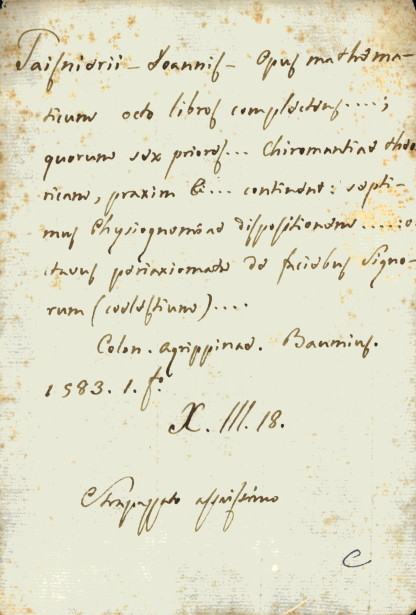 Taisnierii - Joannis - Opus mathema-
ticum octo libros complectens....;
quorum sex priores... Chiromantiae theo
ricam, praxim &... continent: septi-
mus Physiognomiae dispositionem.....: o-
ctavus periaxiomata de faciebus Signo-
rum (coelestium)....
Colon. Agrippinae. Baumius.
1583. 1. fo.
X. III. 18.
Strapazzato assaissimo
C